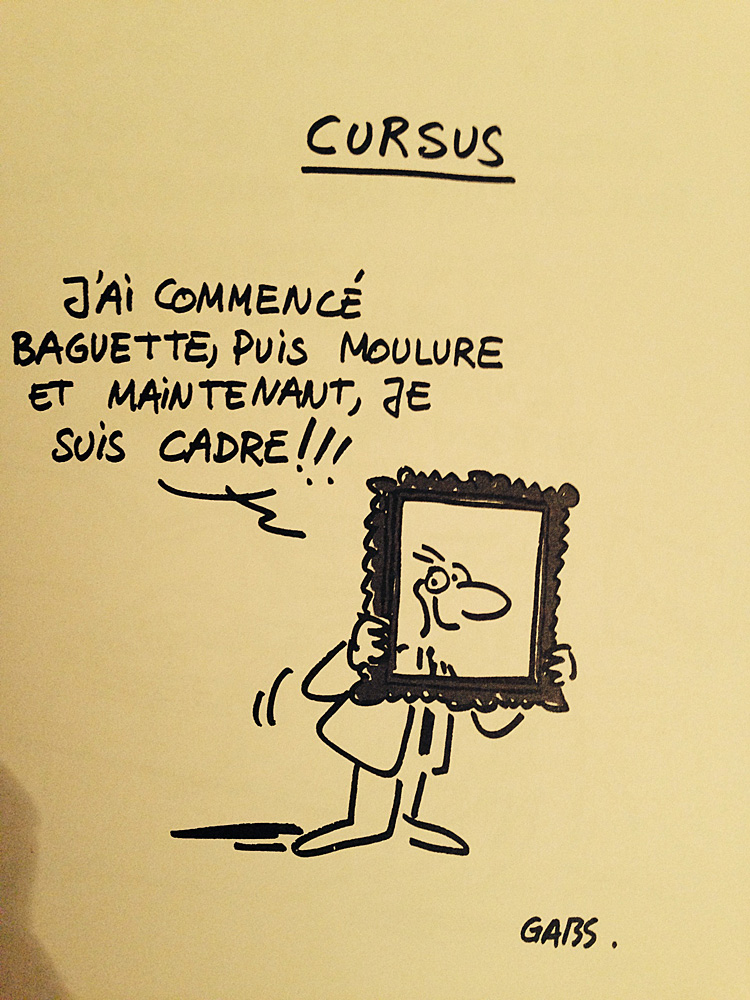 CURSUS
J'Ai COMMENCÉ
BAGUETTE, PUiS MOULURE
ET MAiNTENANT, JE
SUiS CADRE!!!
GABS.